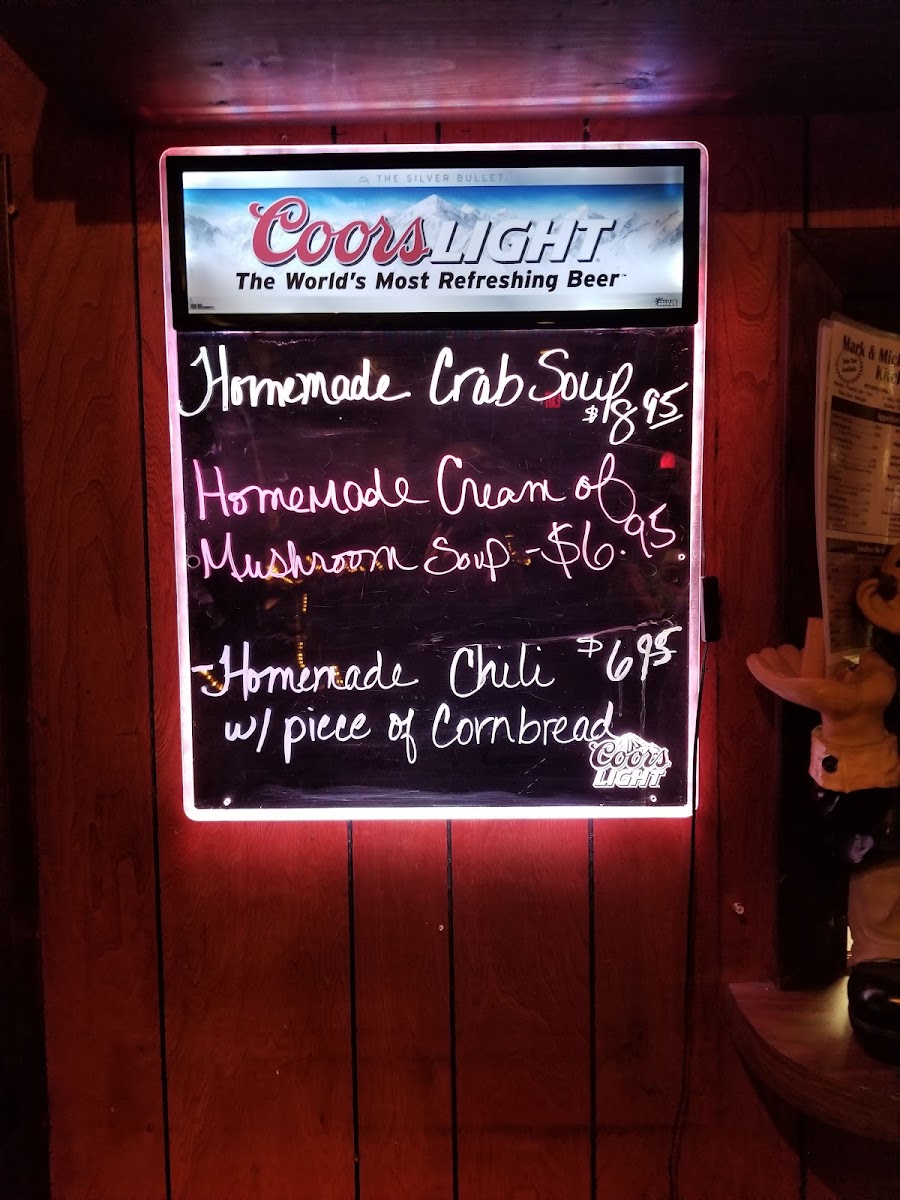 THE SILVER BULLET
Coors LIGHT
The World's Most Refreshing Beer
Homemade Crab Soup
$8.95
Homemade Cream of
Mushroom Soup - $6.95
- Homemade Chili $6.95
w/ piece of Cornbread
Coors
LIGHT
Mark & Mic